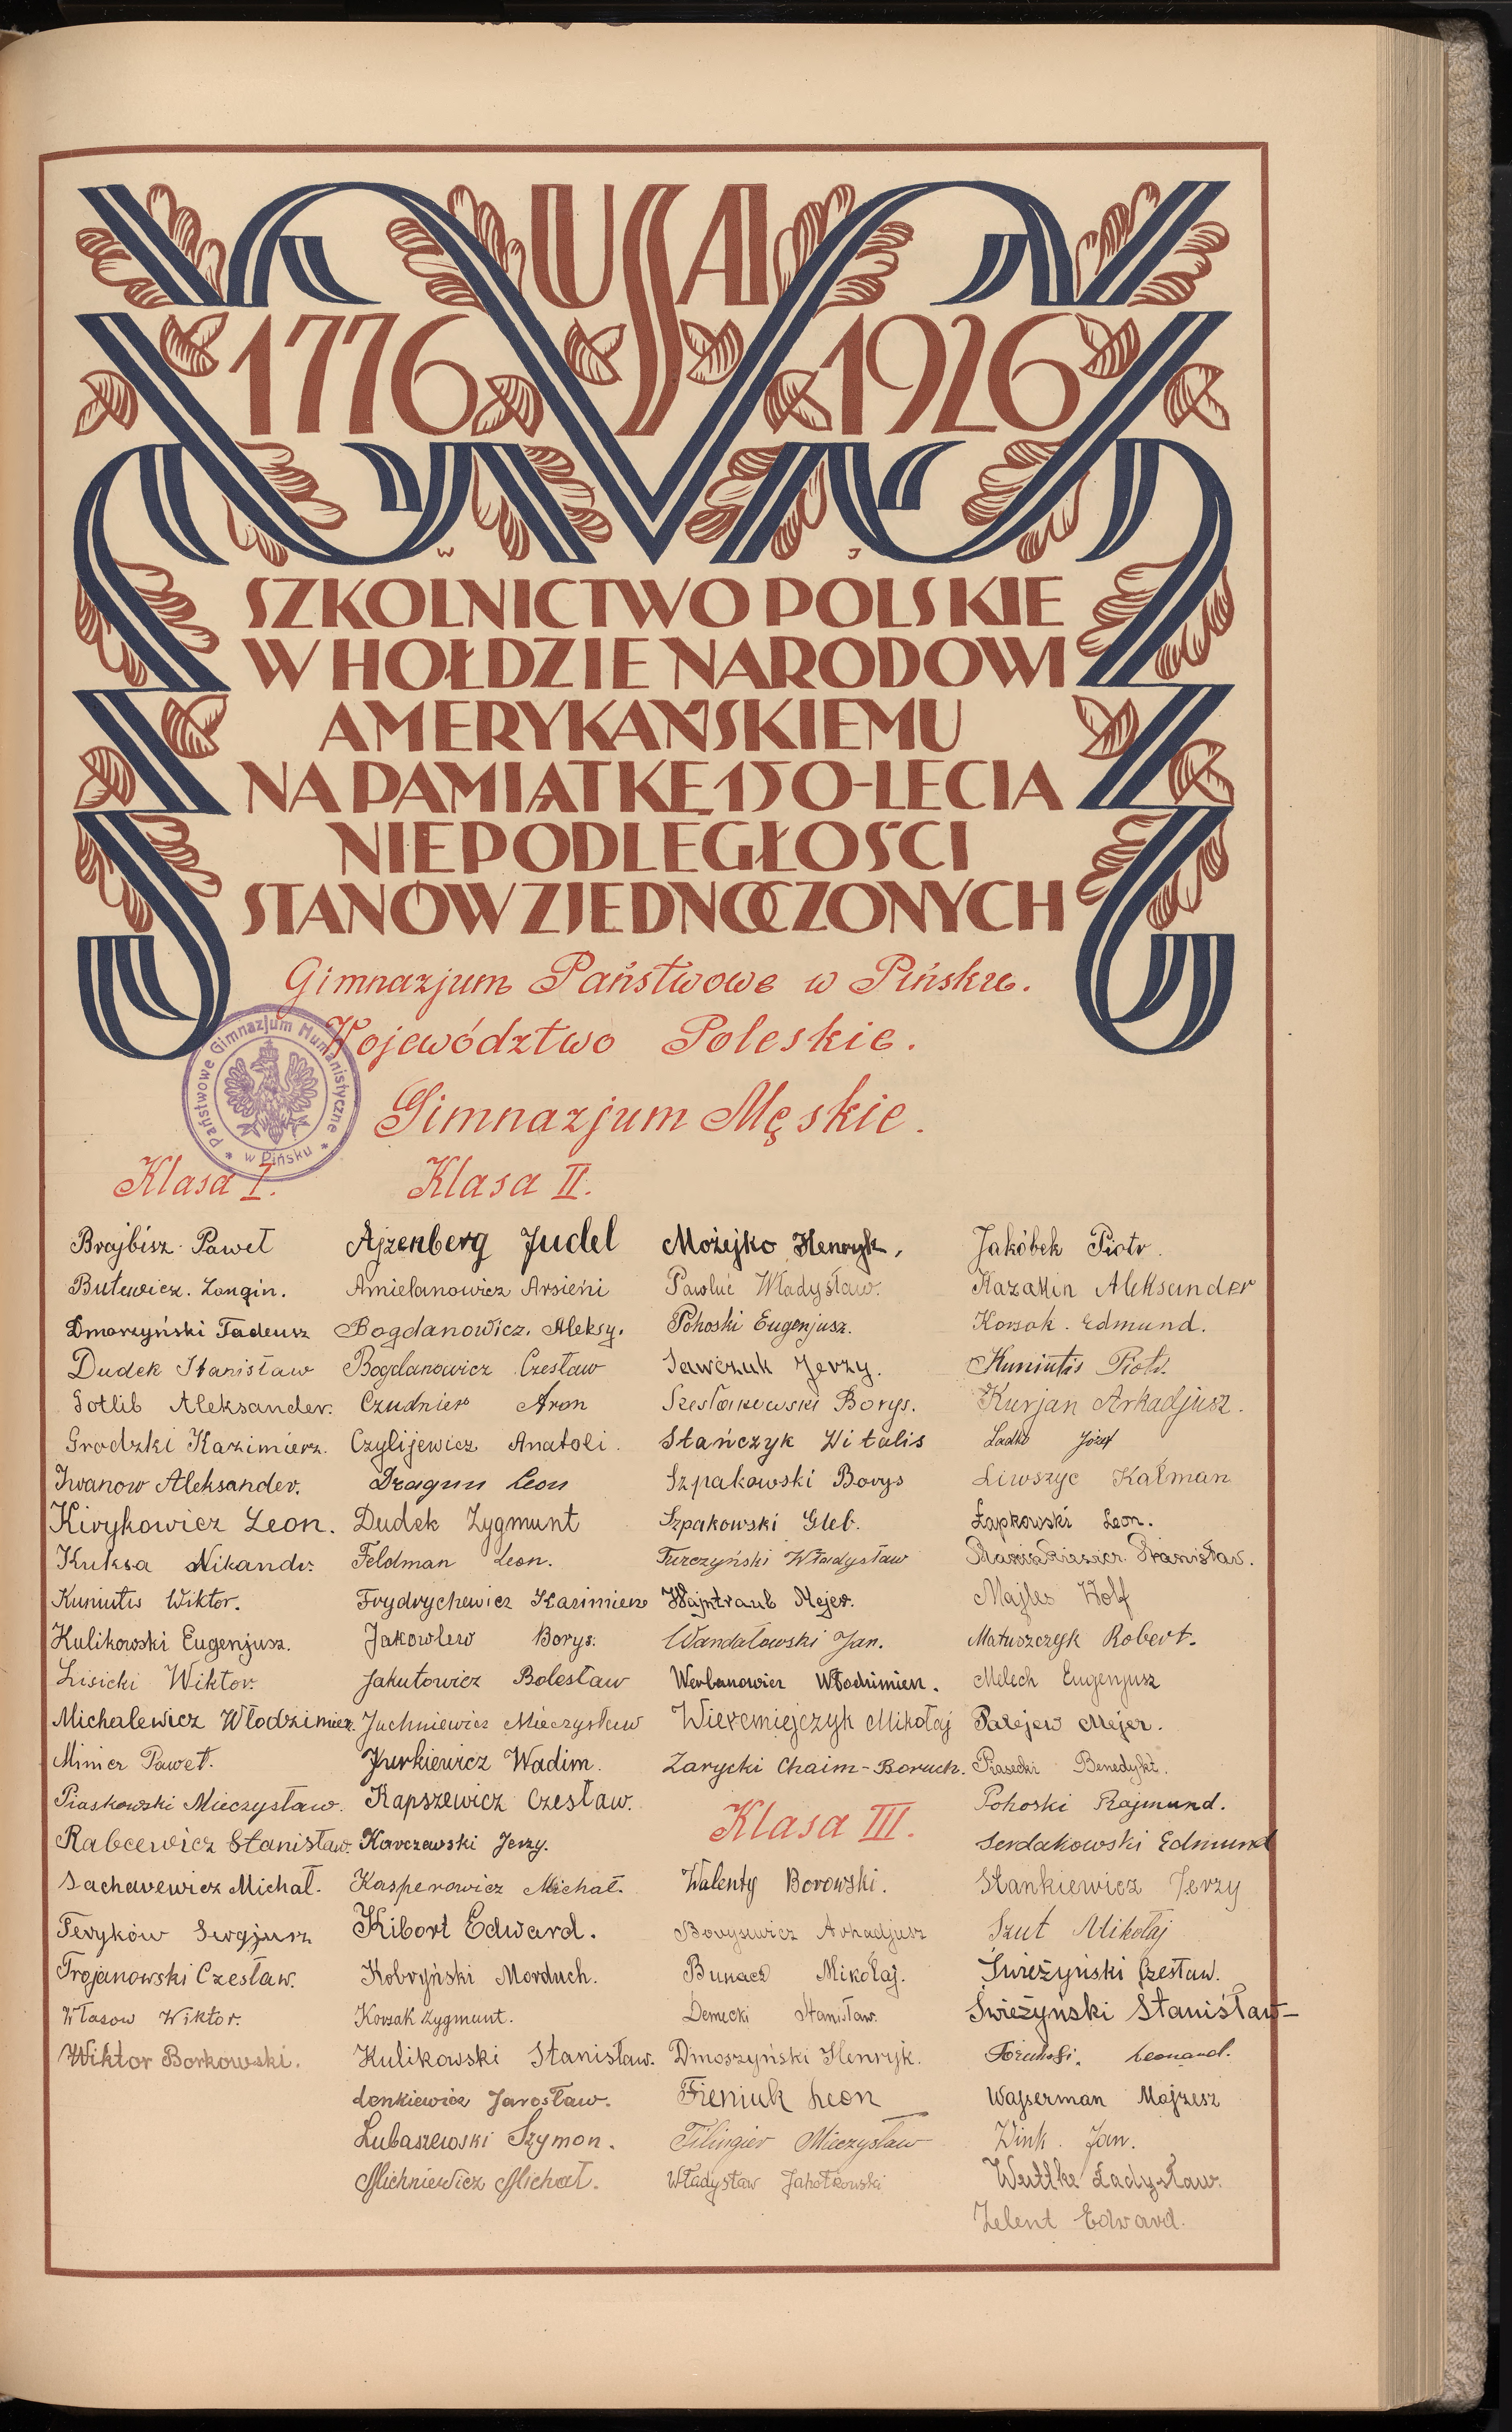 USA
1776 1926
W J
SZKOLNICTWO POLSKIE
W HOŁDZIE NARODOWI
AMERYKAŃSKIEMU
NA PAMIĄTKĘ 150-LECIA
NIEPODLEGŁOŚCI
STANÓW ZJEDNOCZONYCH
Gimnazjum Państwowe w Pińsku.
Województwo Poleskie.
Gimnazjum Męskie.
Państwowe Gimnazjum Humanistyczne
* w Pińsku *
Klasa I.
Brajbisz Paweł
Butewicz. Longin.
Dmorzyński Tadeusz
Dudek Stanisław
Gotlib Aleksander.
Grodzki Kazimierz.
Iwanow Aleksander.
Kirykowicz Leon.
Kuksa Nikandr.
Kuniutis Wiktor.
Kulikowski Eugenjusz.
Lisicki Wiktor.
Michalewicz Włodzimierz.
Minicz Paweł.
Piaskowski Mieczysław.
Rabcewicz Stanisław.
Sacharewicz Michał.
Teryków Sergjusz
Trojanowski Czesław.
Własow Wiktor.
Wiktor Borkowski.
Klasa II.
Ajzenberg Judel
Amielanowicz Arsieni
Bogdanowicz. Aleksy.
Bogdanowicz Czesław
Czudnier Aron
Czylijewicz Anatoli.
Dragun Leon
Dudek Zygmunt
Feldman Leon.
Frydrychewicz Kazimierz
Jakowlew Borys.
Jakutowicz Bolesław
Juchniewicz Mieczysław
Jurkiewicz Wadim.
Kapszewicz Czesław.
Karczewski Jerzy.
Kasperowicz Michał.
Kibort Edward.
Kobryński Morduch.
Korzak Zygmunt.
Kulikowski Stanisław.
Lenkiewicz Jarosław.
Lubaszewski Szymon.
Michniewicz Michał.
Możejko Henryk.
Pawluć Władysław.
Pohoski Eugenjusz.
Sawczuk Jerzy.
Szestakowski Borys.
Stańczyk Witalis
Szpakowski Borys
Szpakowski Gleb.
Turczyński Władysław
Wajntraub Mejer.
Wandałowski Jan.
Werbanowicz Włodzimierz.
Wieremiejczyk Mikołaj
Zarycki Chaim-Boruch.
Klasa III.
Walenty Borowski.
Borysewicz Arkadjusz
Bunacz Mikołaj.
Demecki Stanisław.
Dmoszyński Henryk.
Fieniuk Leon
Filingier Mieczysław
Władysław Jahołkowski
Jakóbek Piotr.
Kazakin Aleksander
Korsak. Edmund.
Kuniutis Piotr.
Kurjan Arkadjusz.
Ladko Józef
Liwszyc Kałman
Łapkowski Leon.
Stanisław.
Majles Wolf
Matuszczyk Robert.
Melech Eugenjusz
Palejew Mejer.
Piasecki Benedykt.
Pohoski Rajmund.
Serdakowski Edmund
Stankiewicz Jerzy
Szut Mikołaj
Świeżyński Czesław.
Świeżyński Stanisław-
Leonard.
Wajserman Majzesz
Wink. Jan.
Wuttke Ładysław.
Zelent Edward.